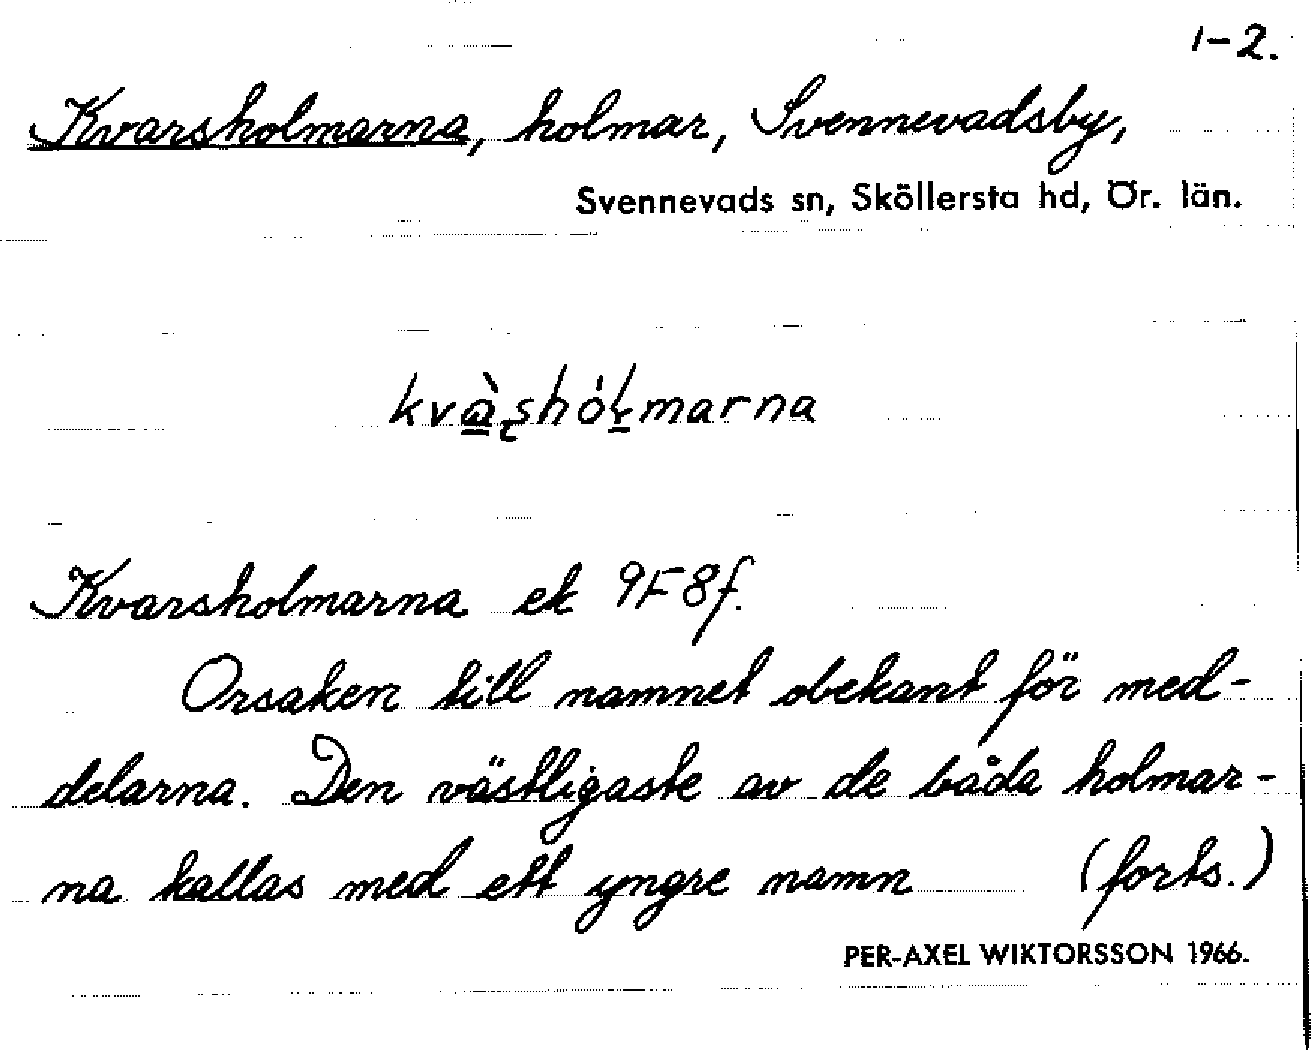 1-2.
Kvarsholmarna, holmar, Svennevadsby,
Svennevads sn, Sköllersta hd, Ör. län.
Kvarsholmarna ek 9F8f.
Orsaken till namnet obekant för med-
delarna. Den västligaste av de båda holmar-
na kallas med ett yngre namn (forts.)
PER-AXEL WIKTORSSON 1966.